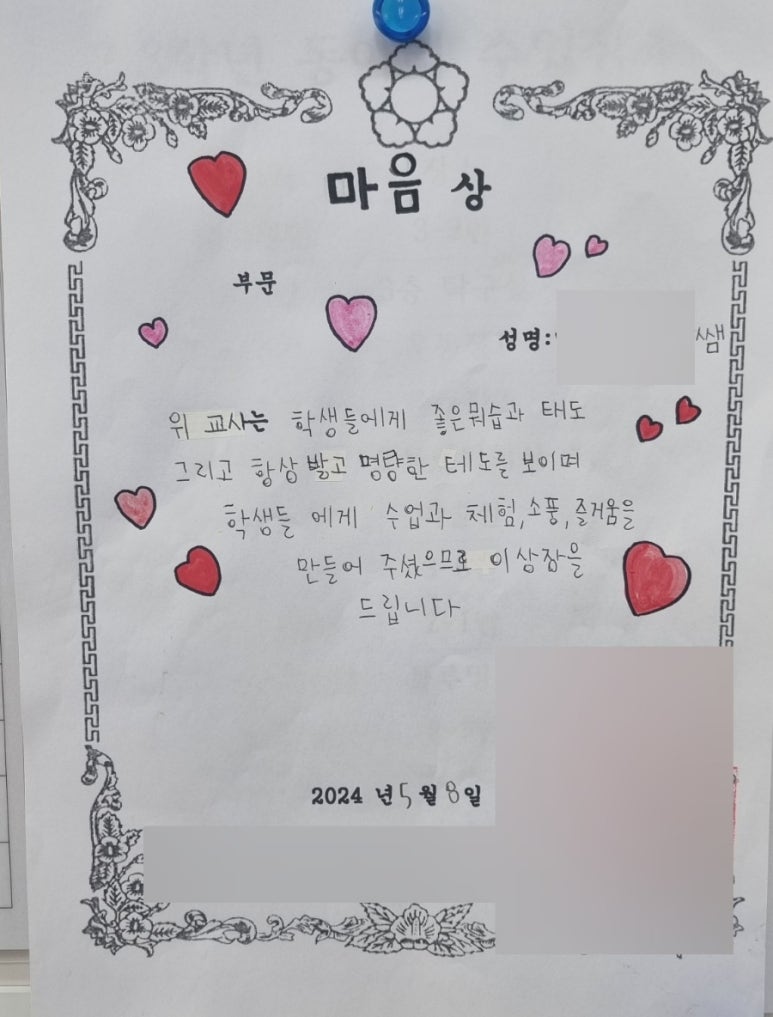 마음 상
부문
성명: 쌤
위 교사는 학생들에게 좋은뭐습과 태도
그리고 항상 발고 명량한 테도를 보이며
학생들 에게 수업과 체험,소풍,즐거움을
만들어 주셨으므로 이상장을
드립니다
2024 년 5 월 8 일